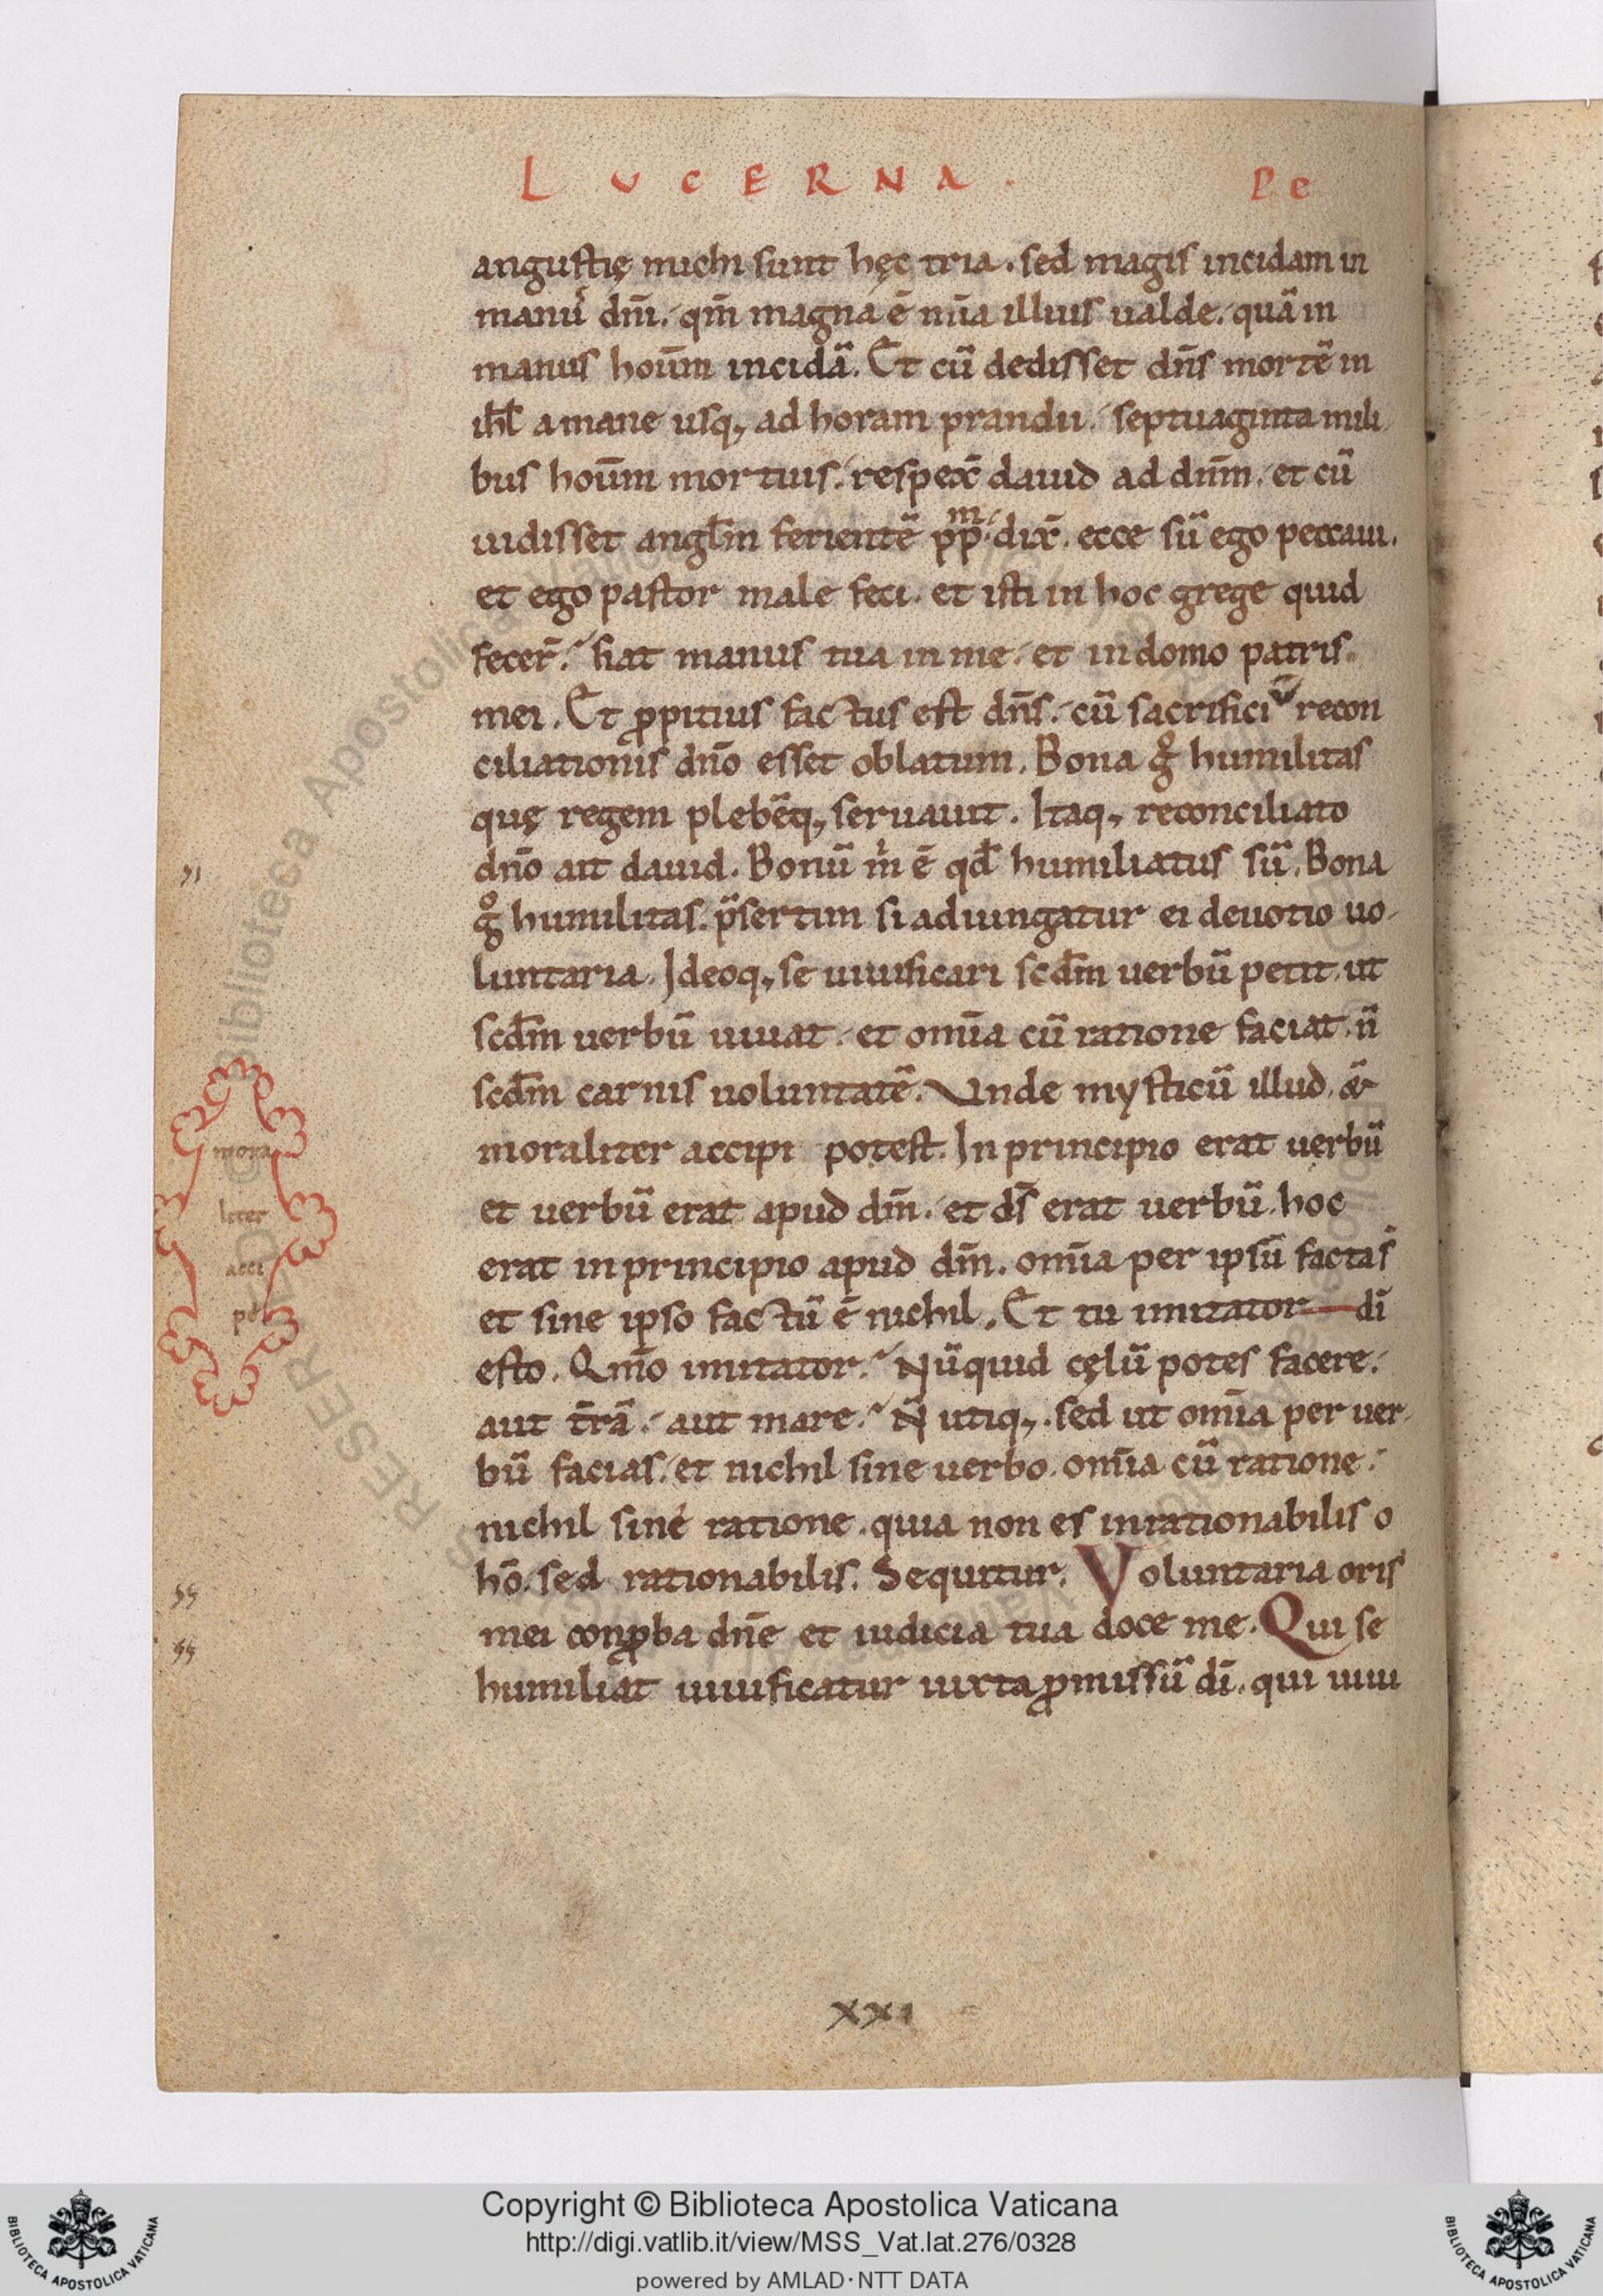 LUCERNA. Pe
angustię michi sunt hęc tria. sed magis incidam in
manuˢ dm̄. qm̄ magna ē mīa illius ualde. quā in
manus hoūm incidā. Et cū dedisset dn̄s mortē in
ihl̄ a mane usq; ad horam prandii. septuaginta mili
bus hoūm mortuis. respex̄ dauid ad dn̄m. et cū
uidisset angl̄m ferientē pp̄m. dix̄. ecce sū ego peccaui.
et ego pastor male feci. et isti in hoc grege quid
fecer̄. fiat manus tua in me. et in domo patris
mei. Et ꝓpitius factus est dn̄s. cū sacrificiū recon
ciliationis dn̄o esset oblatum. Bona gͦ humilitas
quę regem plebēq; seruauit. Itaq; reconciliato
dn̄o ait dauid. Bonū mⁱ ē qd̄ humiliatus sū. Bona
gͦ humilitas. p̄sertim si adiungatur ei deuotio uo-
luntaria. Ideoq; se uiuificari scd̄m uerbū petit. ut
scd̄m uerbū uiuat. et om̄ia cū ratione faciat. n̄
scd̄m carnis uoluntatē. Vnde mysticū illud. &
moraliter accipi potest. In principio erat uerbū
et uerbū erat apud dm̄. et ds̄ erat uerbū. hoc
erat in principio apud dm̄. om̄ia per ipsū facta s̄
et sine ipso factū ē nichil. Et tu imitator di̅
esto. Qm̄o imitator. Nūquid cęlū potes facere.
aut t̄rā. aut mare. N̄ utiq;. sed ut om̄ia per uer-
bū facias. et nichil sine uerbo. om̄ia cū ratione.
nichil sine ratione. quia non es inrationabilis o
hō. sed rationabilis. Sequitur. Voluntaria oris
mei conꝓba dn̄e et iudicia tua doce me. Qui se
humiliat uiuificatur iuxta ꝓmissū di̅. qui uiui
mora
liter
acci
pe
XXI
Copyright © Biblioteca Apostolica Vaticana
http://digi.vatlib.it/view/MSS_Vat.lat.276/0328
powered by AMLAD·NTT DATA
BIBLIOTECA APOSTOLICA VATICANA
BIBLIOTECA APOSTOLICA VATICANA